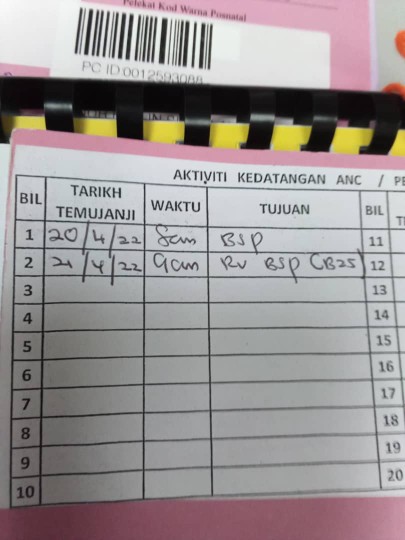 Pelekat Kod Warna Posnatal
PC ID:0012593088
AKTIVITI KEDATANGAN ANC / PE
BIL TARIKH TEMUJANJI WAKTU TUJUAN BIL
1 20/4/22 8am BSP 11
2 21/4/22 9am RV BSP (B25) 12
3 13
4 14
5 15
6 16
7 17
8 18
9 19
10 20